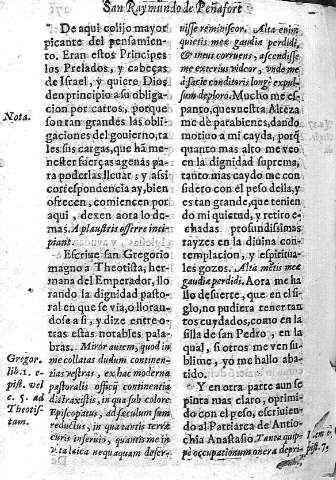 San Raymundo de Peñafort
De aqui colijo mayor
picante del pensamien-
to. Eran estos Principes
los Prelados, y cabeças
de Israel, y quiere Dios
den principio a su obliga-
cion por carros, porque
son tan grandes las obli-
gaciones del gouierno, ta-
les sus cargas, que hã me-
nester fuerças agenas pa-
ra poderlas lleuar; y assi
correspondencia ay, bien
ofrecen, comiencen por
aqui, dexen aora lo de-
mas. A plaustris offerre inci-
piant.
Escriue san Gregorio
magno a Theotista, her-
mana del Emperador, llo
rando la dignidad pasto-
ral en que se via, o lloran-
dose a si, y dize entre o-
tras estas notables pala-
bras. Miror autem, quod in
me collatas dudum continen-
tias vestras, ex hac moderna
pastoralis officij continentia
distraxistis, in qua sub colore
Episcopatus, ad sæculum sum
reductus, in qua tantis terræ
curis inseruio, quantis me in
vita laica nequaquam deser-
Nota.
Gregor.
lib. 1. e-
pist. vel
c. 5. ad
Theotis-
tam.
uisse reminiscor. Alta enim
quietis meæ gaudia perdidi,
& intus corruens, ascendisse
me exterius videor, vnde me
à facie conditoris longè expul-
sum deploro. Mucho me es-
panto, que vuestra Alteza
me dè parabienes, dando
motiuo a mi cayda, porq̃
quanto mas alto me veo
en la dignidad suprema,
tanto mas caydo me con
sidero con el peso della, y
es tan grande, que tenien
do mi quietud, y retiro e-
chadas profundissimas
rayzes en la diuina con-
templacion, y espiritua-
les gozos. Alta mentis meæ
gaudia perdidi. Aora me ha
llo desuerte, que en el si-
glo, no pudiera tener tan
tos cuydados, como en la
silla de san Pedro, en la
qual, si otros me ven su-
blime, yo me hallo aba-
tido.
Y en otra parte aun se
pinta mas claro, oprimi-
do con el peso, escriuien
do al Patriarca de Antio-
chia Anastasio. Tanta quip-
pe occupationum onera depri-